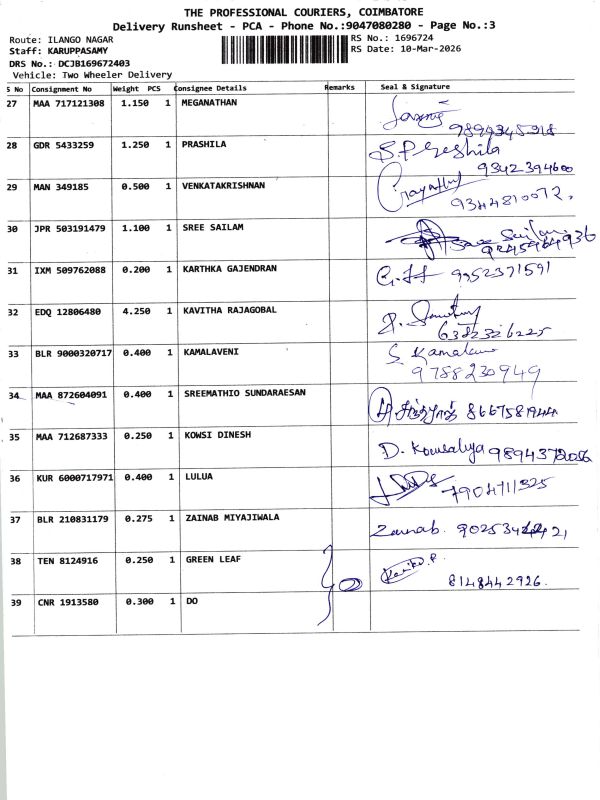 THE PROFESSIONAL COURIERS, COIMBATORE
Delivery Runsheet - PCA - Phone No.:9047080280 - Page No.:3
Route: ILANGO NAGAR RS No.: 1696724
Staff: KARUPPASAMY RS Date: 10-Mar-2026
DRS No.: DCJB169672403
Vehicle: Two Wheeler Delivery
S No Consignment No Weight PCS Consignee Details Remarks Seal & Signature
27 MAA 717121308 1.150 1 MEGANATHAN
28 GDR 5433259 1.250 1 PRASHILA
9342394600
29 MAN 349185 0.500 1 VENKATAKRISHNAN
9344810072.
30 JPR 503191479 1.100 1 SREE SAILAM
31 IXM 509762088 0.200 1 KARTHKA GAJENDRAN 9952371591
32 EDQ 12806480 4.250 1 KAVITHA RAJAGOBAL
6382326225
33 BLR 9000320717 0.400 1 KAMALAVENI
9788230949
34 MAA 872604091 0.400 1 SREEMATHIO SUNDARAESAN
35 MAA 712687333 0.250 1 KOWSI DINESH
D. Kowsalya
36 KUR 6000717971 0.400 1 LULUA
7904711325
37 BLR 210831179 0.275 1 ZAINAB MIYAJIWALA
Zainab.
38 TEN 8124916 0.250 1 GREEN LEAF
8148442926.
39 CNR 1913580 0.300 1 DO